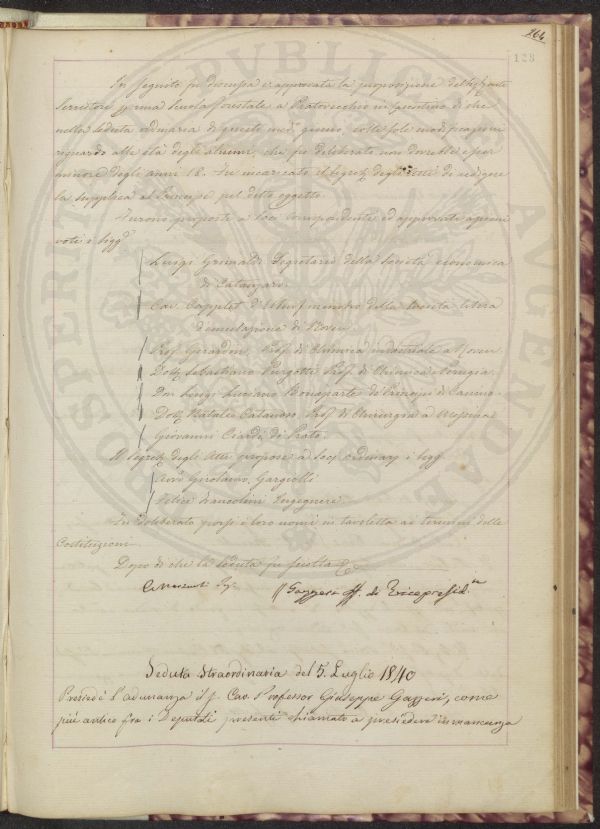 264
128
In seguito fu discussa e approvata la proposizione del
Servitori p una Scuola forestale a Pratovecchio in Casentino di che
nella seduta ordinaria di questo med. giorno, colla sola modificazione
riguardo alla età degli alunni, che fu deliberato non dovrebbe esser
minore degli anni 18. Fu incaricato il Segret. degli Atti di redigere
la supplica al Principe pel detto oggetto.
Furono proposti a Soci Corrispondenti ed approvati a pieni
voti i Sigg.
Luigi Grimaldi Segretario della Società economica
di Catanzaro.
Cav. Capplet d'Elbeuf membro della Società libera
d'emulazione di Rouen.
Prof. Girardin, Prof. di Chimica industriale a Rouen
Dott. Sebastiano Purgotti Prof. di Chimica a Perugia.
Don Luigi Luciano Bonaparte di Principi di Canino.
Dott. Natale Catanoso, Prof. di Chirurgia a Messina.
Giovanni Ciardi di Prato.
Il Segret. degli Atti propose a Socj ordinarj i Sigg.
Avv. Girolamo Gargiolli
Felice Francolini Ingegnere
Fu deliberato porsi i loro nomi in tavoletta ai termini delle
Costituzioni.
Dopo di che la seduta fu sciolta
Gazzeri ff. di Vicepresid.
Seduta Straordinaria del 5. Luglio 1840
Presiedé l'adunanza il S. Cav. Professor Giuseppe Gazzeri, come
più antico fra i Deputati presenti chiamato a presiedere in mancanza
PROSPERITATI PVBLICAE AVGENDAE